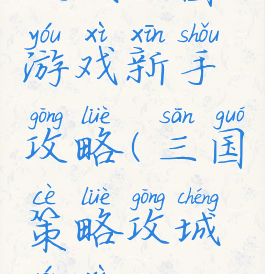 yóu xì xīn shǒu
游戏新手
gōng lüè sān guó
攻略(三国
cè lüè gōng chéng
策略攻城